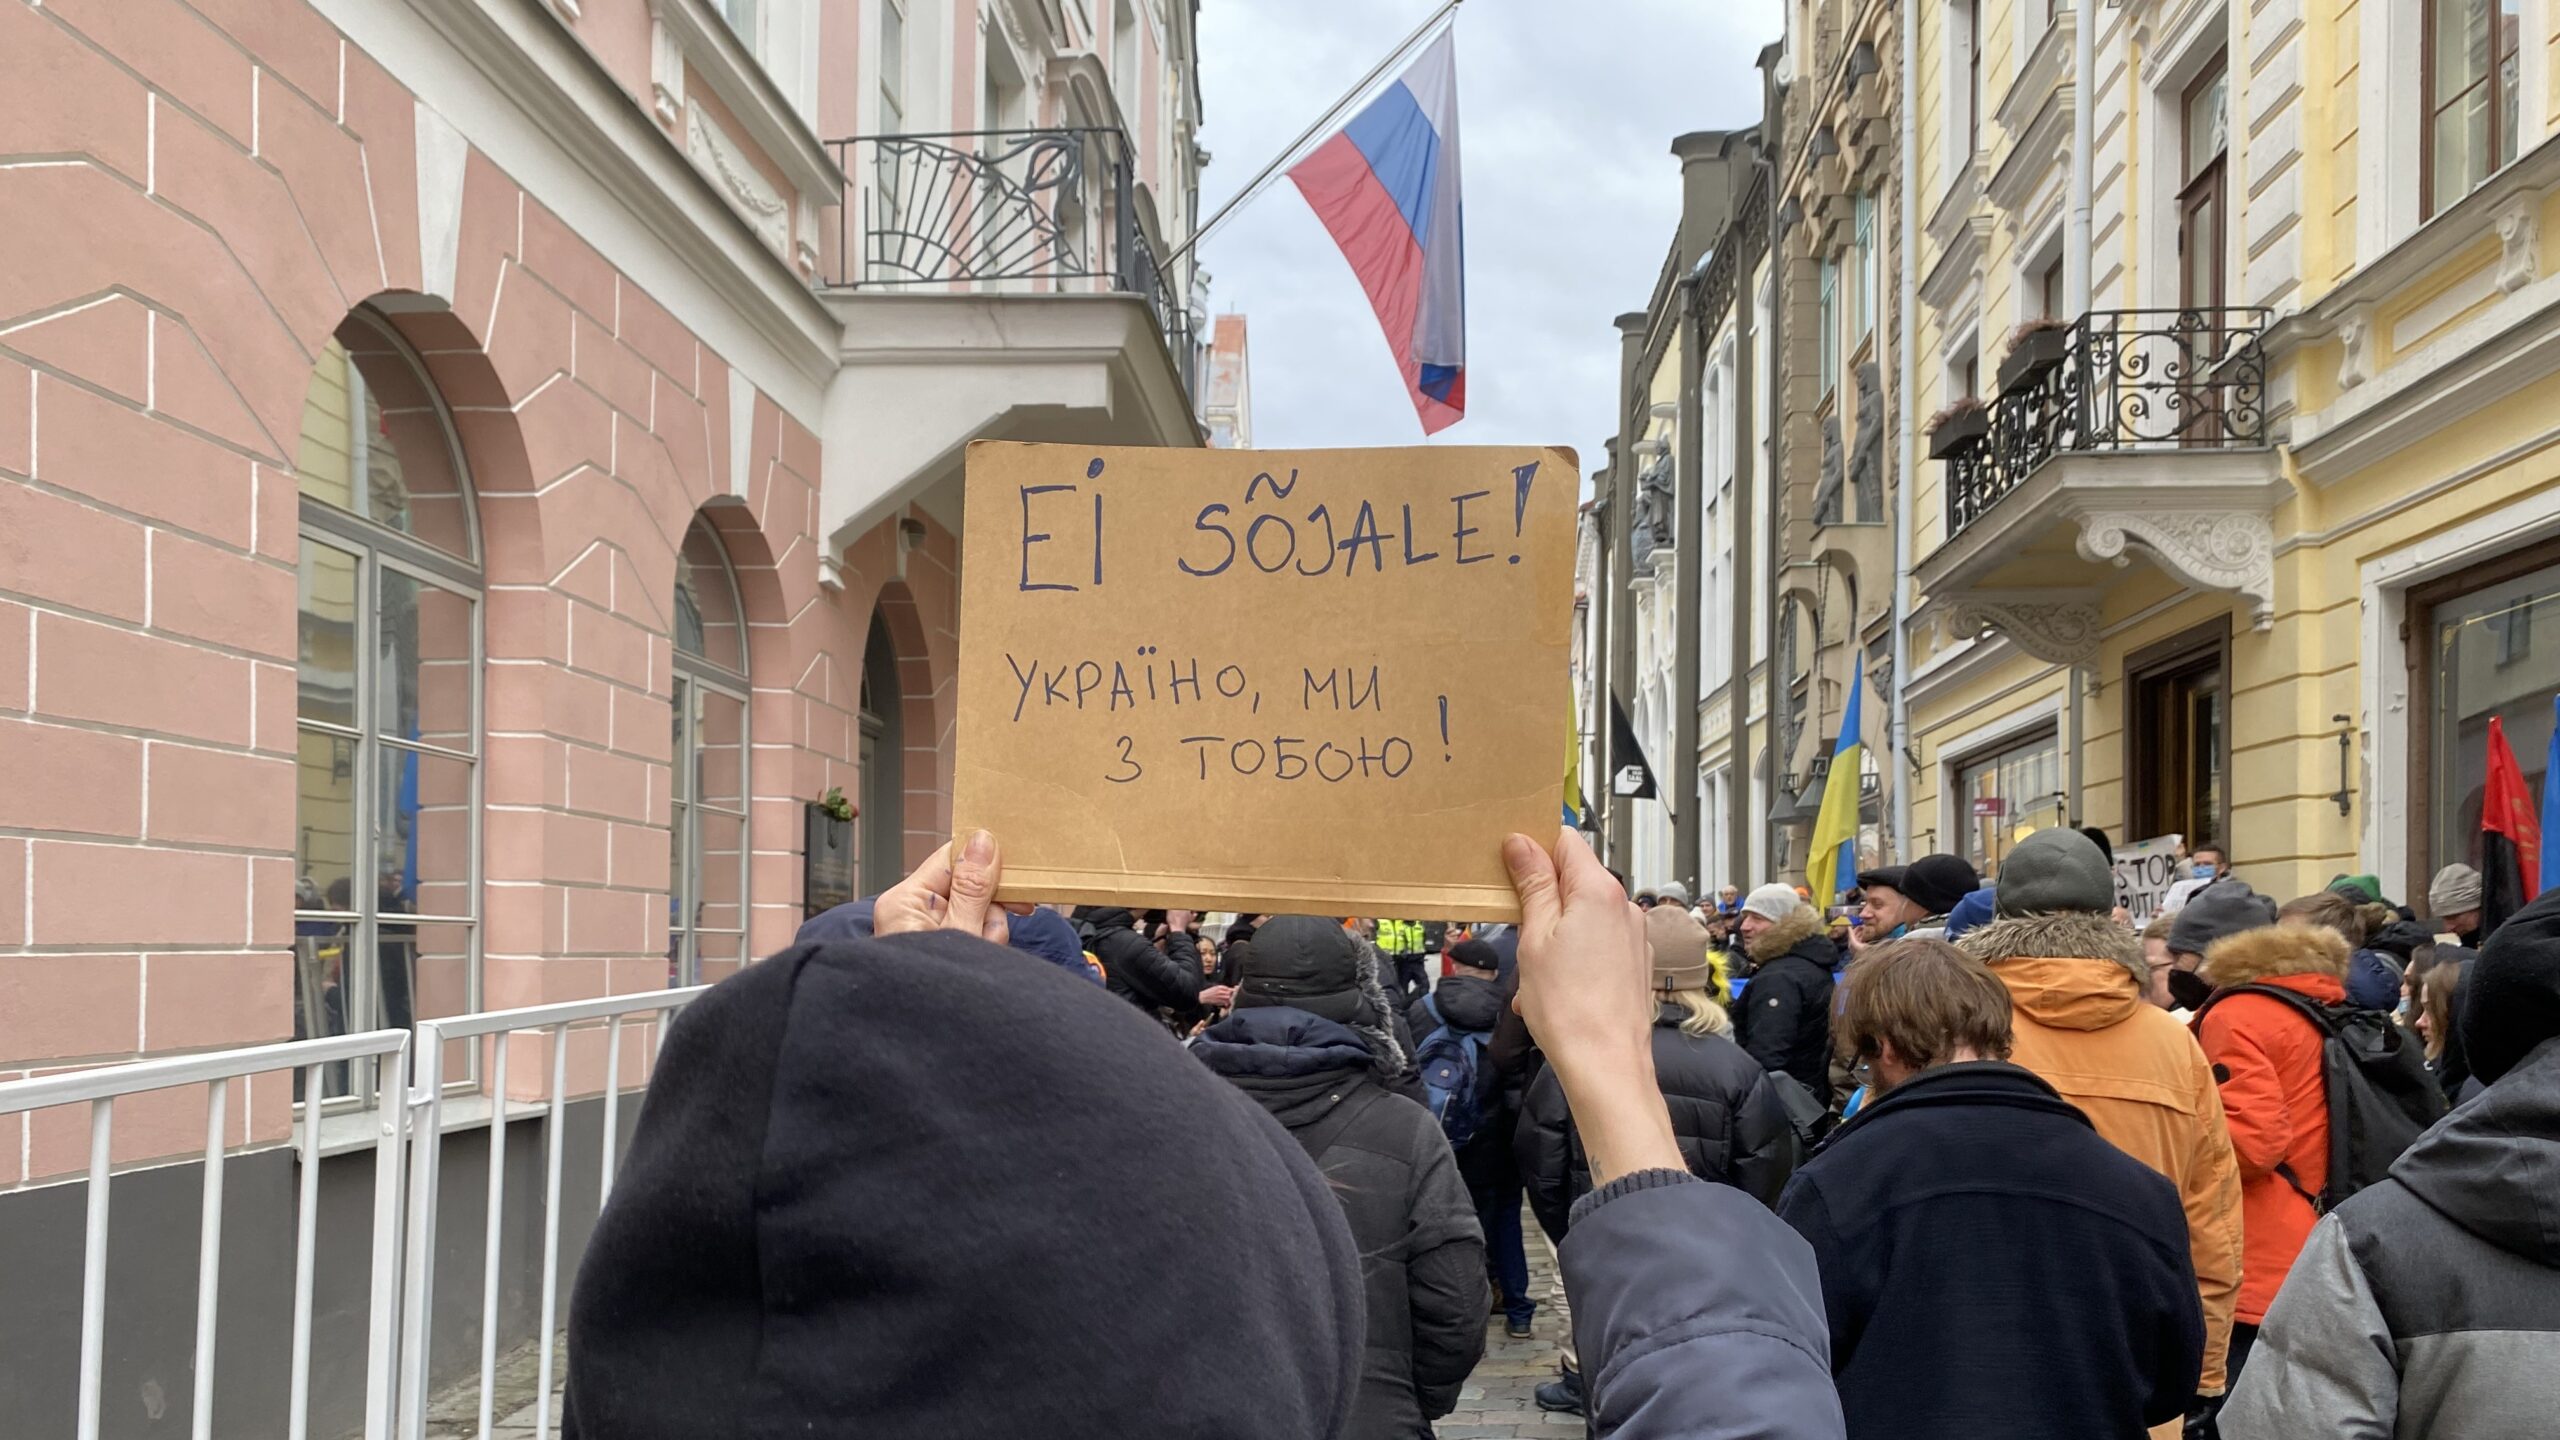 EI SÕJALE!
УКРАЇНО, МИ
З ТОБОЮ!
STOP